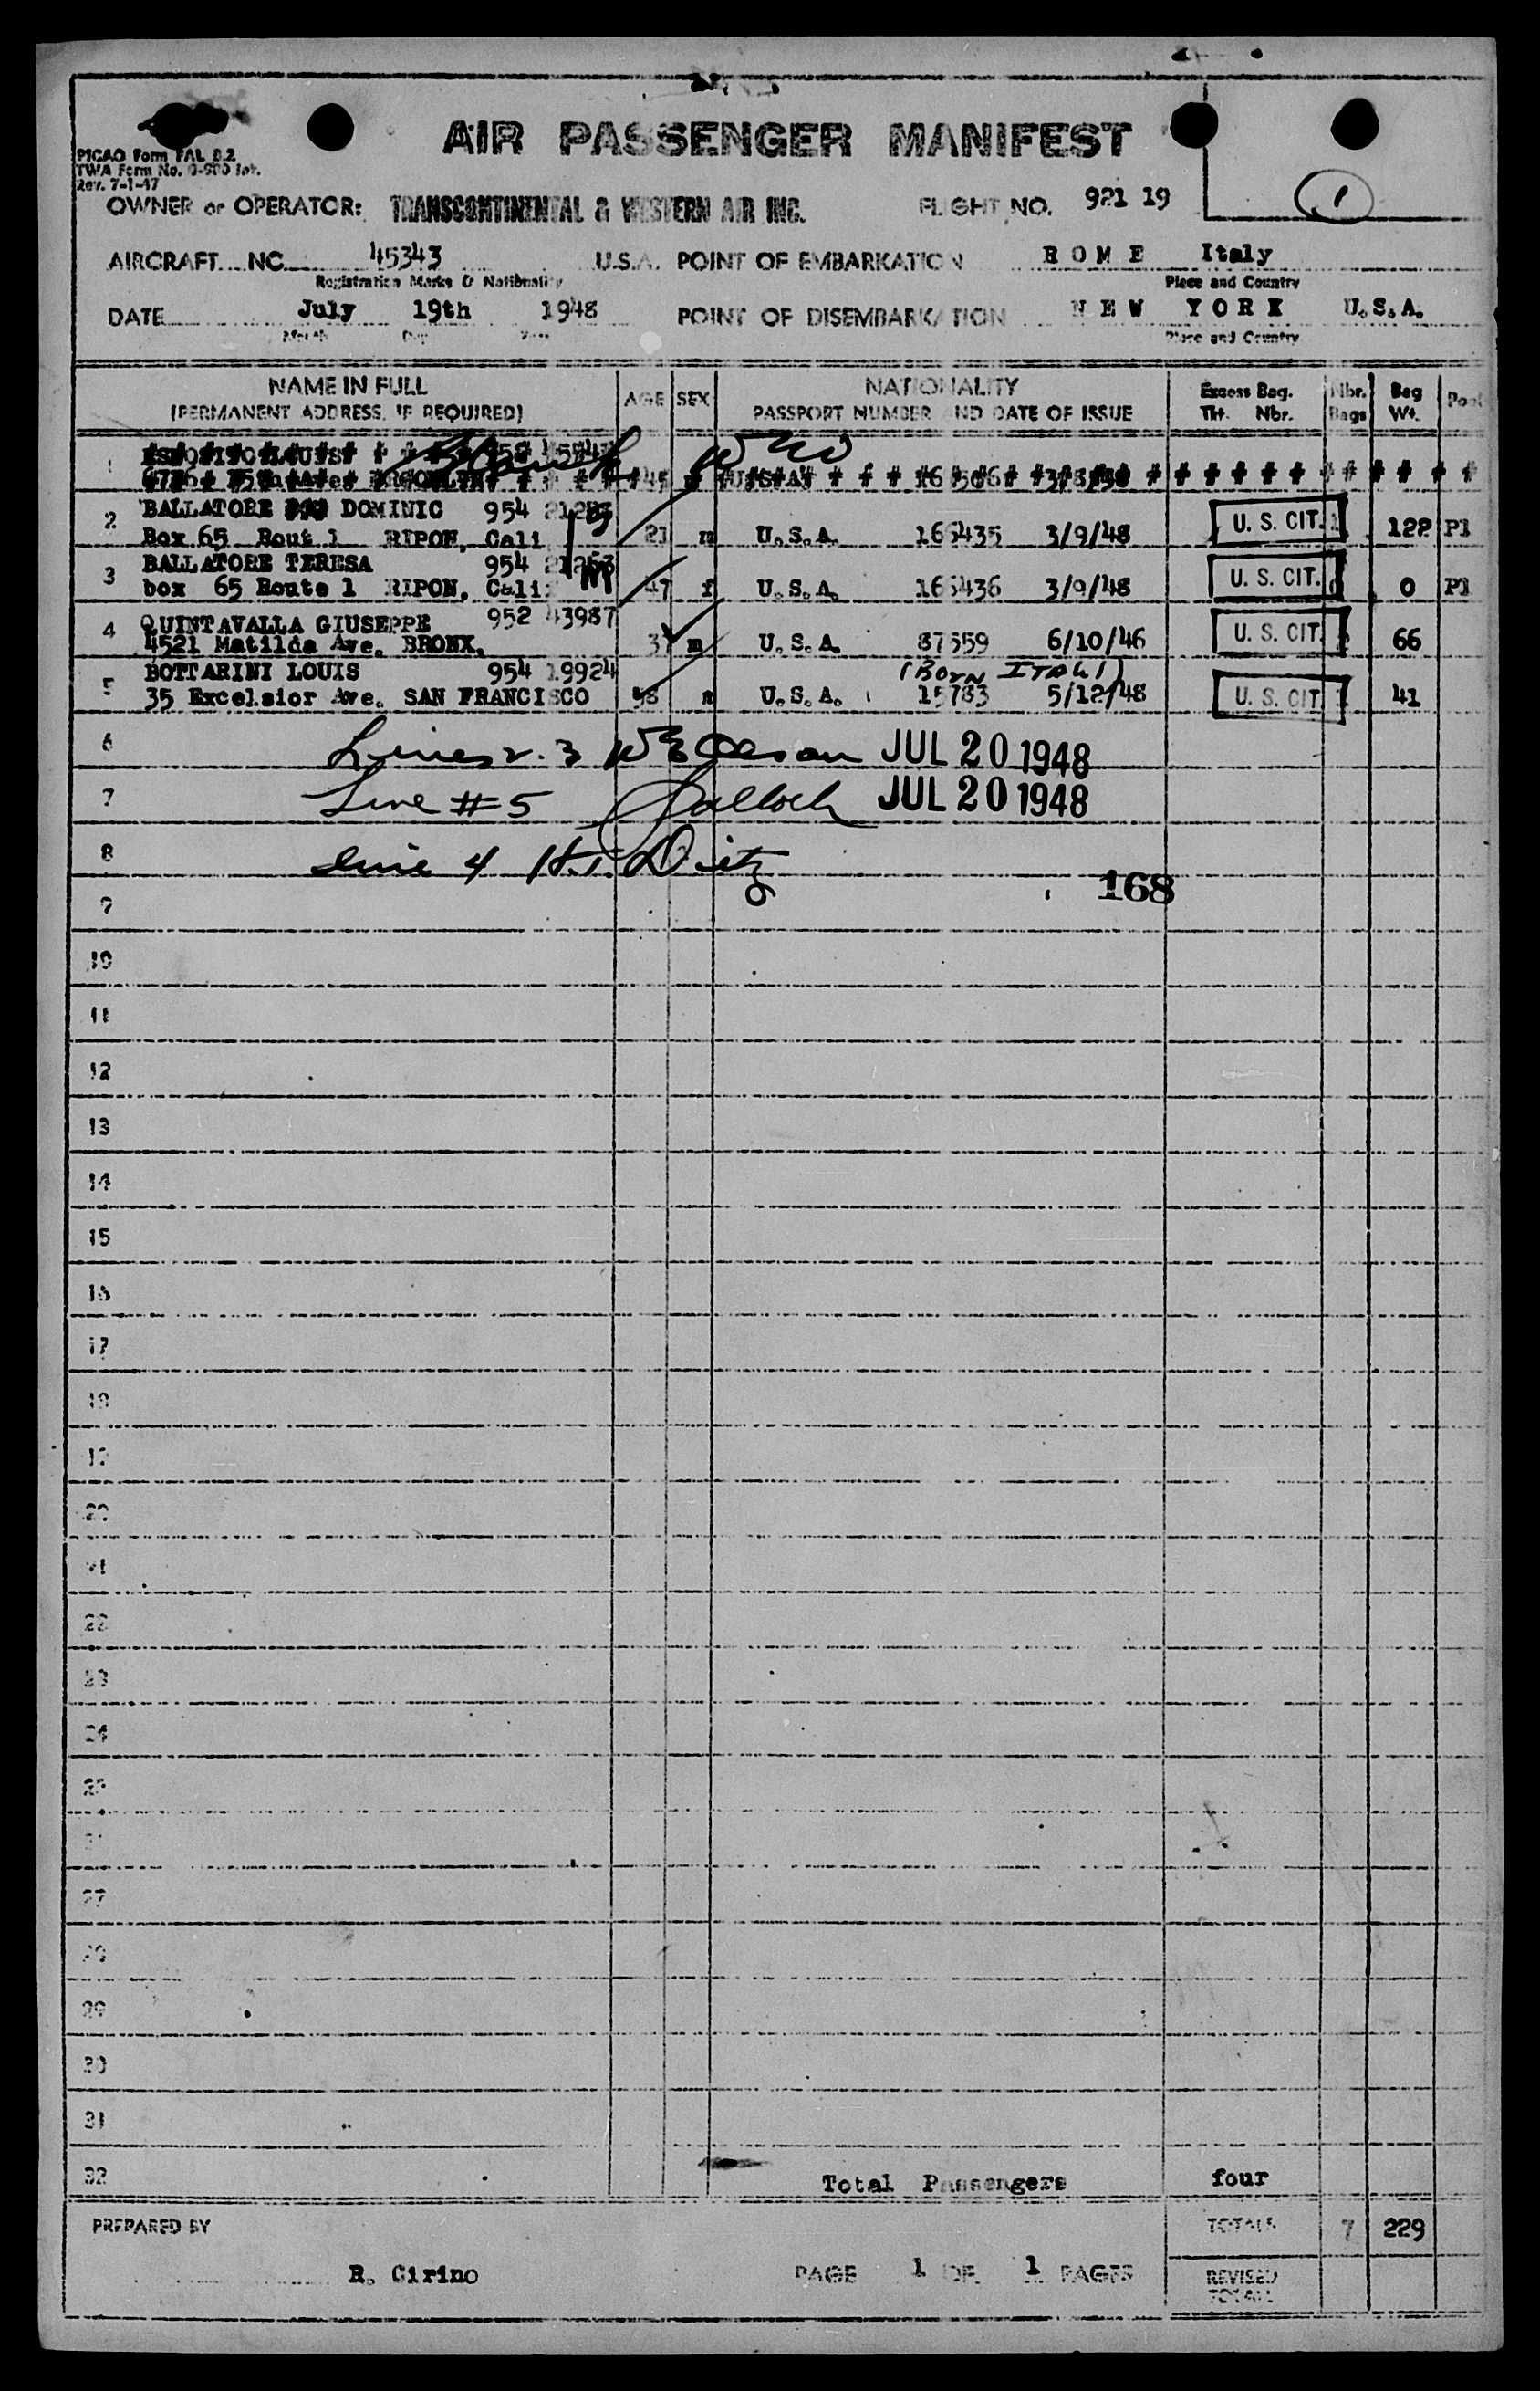 AIR PASSENGER MANIFEST
PICAO Form FAL
TWA Form No.
Rev. 7-1-47
OWNER or OPERATOR: TRANSCONTINENTAL & WESTERN AIR INC. FLIGHT NO. 921 19 1
AIRCRAFT NC 45343 U.S.A. POINT OF EMBARKATION ROME Italy
Registration Marks & Nationality Place and Country
DATE July 19th 1948 POINT OF DISEMBARKATION NEW YORK U.S.A.
Month Day Year Place and Country
NAME IN FULL AGE SEX NATIONALITY Excess Bag. Nbr. Bag
(PERMANENT ADDRESS, IF REQUIRED) PASSPORT NUMBER AND DATE OF ISSUE Tkt. Nbr. Bags Wt. Pool
1
2 BALLATORE DOMINIC 954
Box 65 Rout 1 RIPON, Cali m U.S.A. 166435 3/9/48 U. S. CIT. 122 P1
3 BALLATORE TERESA 954
box 65 Route 1 RIPON, Cali 47 f U.S.A. 166436 3/9/48 U. S. CIT. 0 P1
4 QUINTAVALLA GIUSEPPE 952 43987
4521 Matilda Ave. BRONX. m U.S.A. 87559 6/10/46 U. S. CIT. 66
5 BOTTARINI LOUIS 954 19924 (BORN ITALY)
35 Excelsior Ave. SAN FRANCISCO 58 m U.S.A. 15783 5/12/48 U. S. CIT. 41
6 Lines 2. 3 JUL 20 1948
7 Line #5 JUL 20 1948
8 Line 4 H.T. Dietz
9 168
10
11
12
13
14
15
16
17
18
19
20
21
22
23
24
25
27
29
30
31
32 Total Passengers four
PREPARED BY TOTALS 7 229
R. Cirino PAGE 1 OF 1 PAGES REVISED
TOTALS